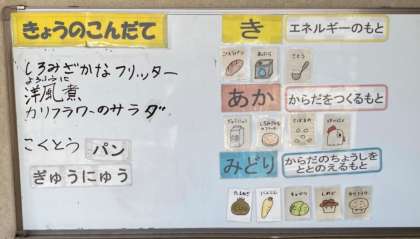 きょうのこんだて
しろみざかなフリッター
ようふうに
洋風煮
カリフラワーのサラダ
こくとう パン
ぎゅうにゅう
き エネルギーのもと
あぶら さとう
あか からだをつくるもと
ぎゅうにゅう
みどり からだのちょうしを
ととのえるもと
たまねぎ にんじん